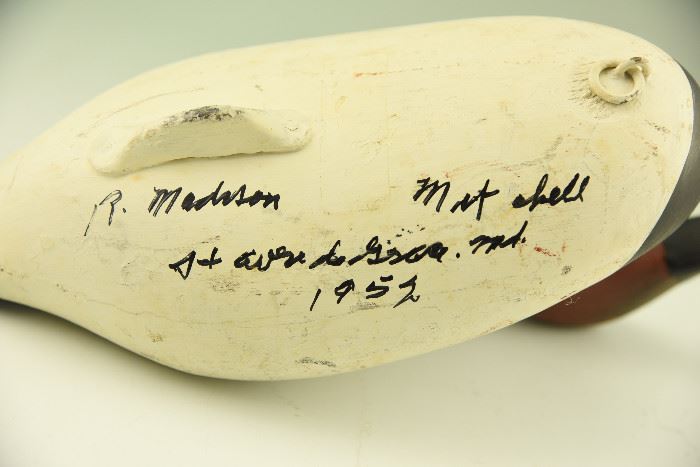 R. Madison Mitchell
Havre de Grace. Md.
1952